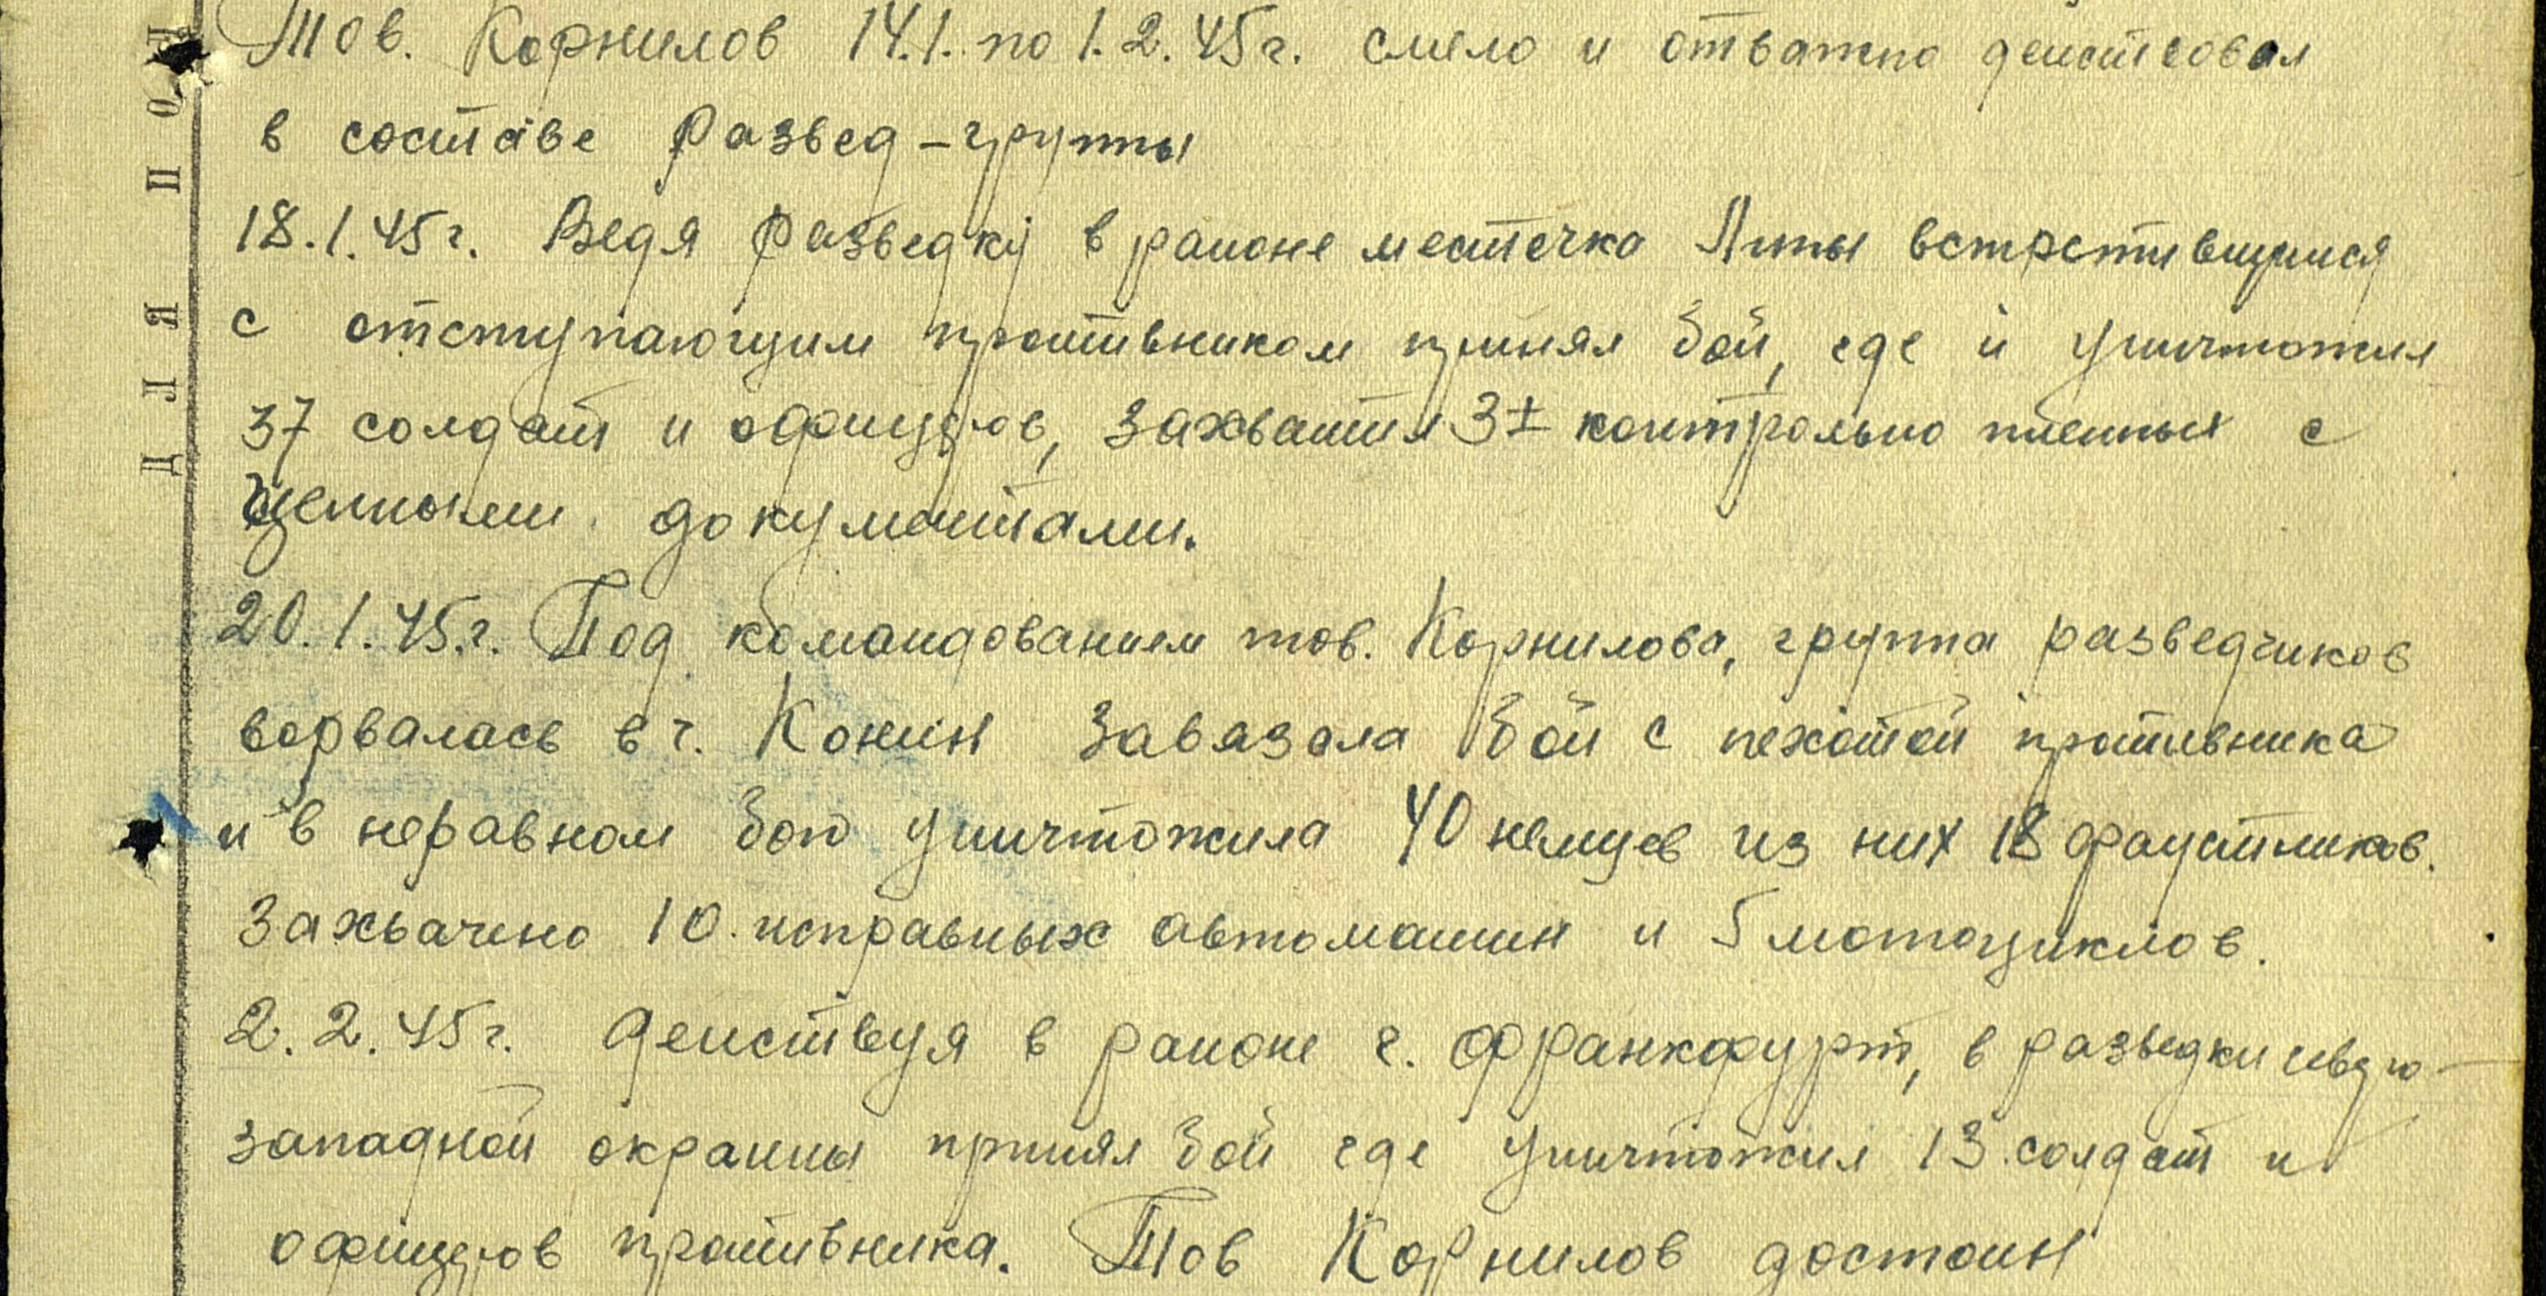 Тов. Корнилов 14.1. по 1.2.45г. смело и отважно действовал
в составе развед-группы
18.1.45г. Ведя разведку в районе местечка Липы встретившимся
с отступающим противником принял бой, где и уничтожил
37 солдат и офицеров, захватил 3х контрольно пленных с
ценными документами.
20.1.45.г. Под командованием тов. Корнилова, группа разведчиков
ворвалась в г. Конин завязала бой с пехотой противника
и в неравном бою уничтожила 40 немцев из них 18 фаустников.
Захвачено 10 исправных автомашин и 5 мотоциклов.
2.2.45г. Действуя в районе г. Франкфурт, в разведки
западной окраины принял бой где уничтожил 13 солдат и
офицеров противника. Тов Корнилов достоин
ДЛЯ ПО